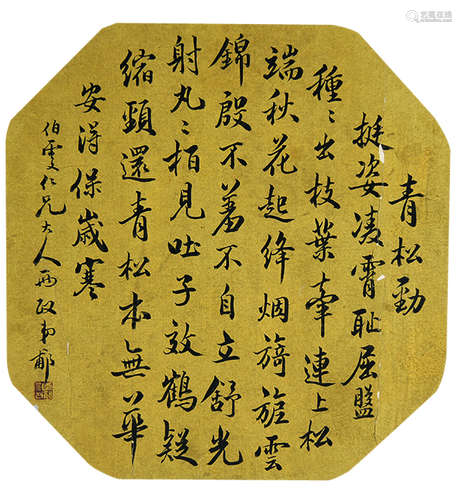 青松勁
挺姿凌霄恥屈盤
種〻出枝葉牽連上松
端秋花起絳烟旖旎雲
錦殷不羞不自立舒光
射丸〻栢見吐子效鶴疑
縮頸還青松本無華
安得保歲寒
仁兄大人兩政弟
艺狐在线